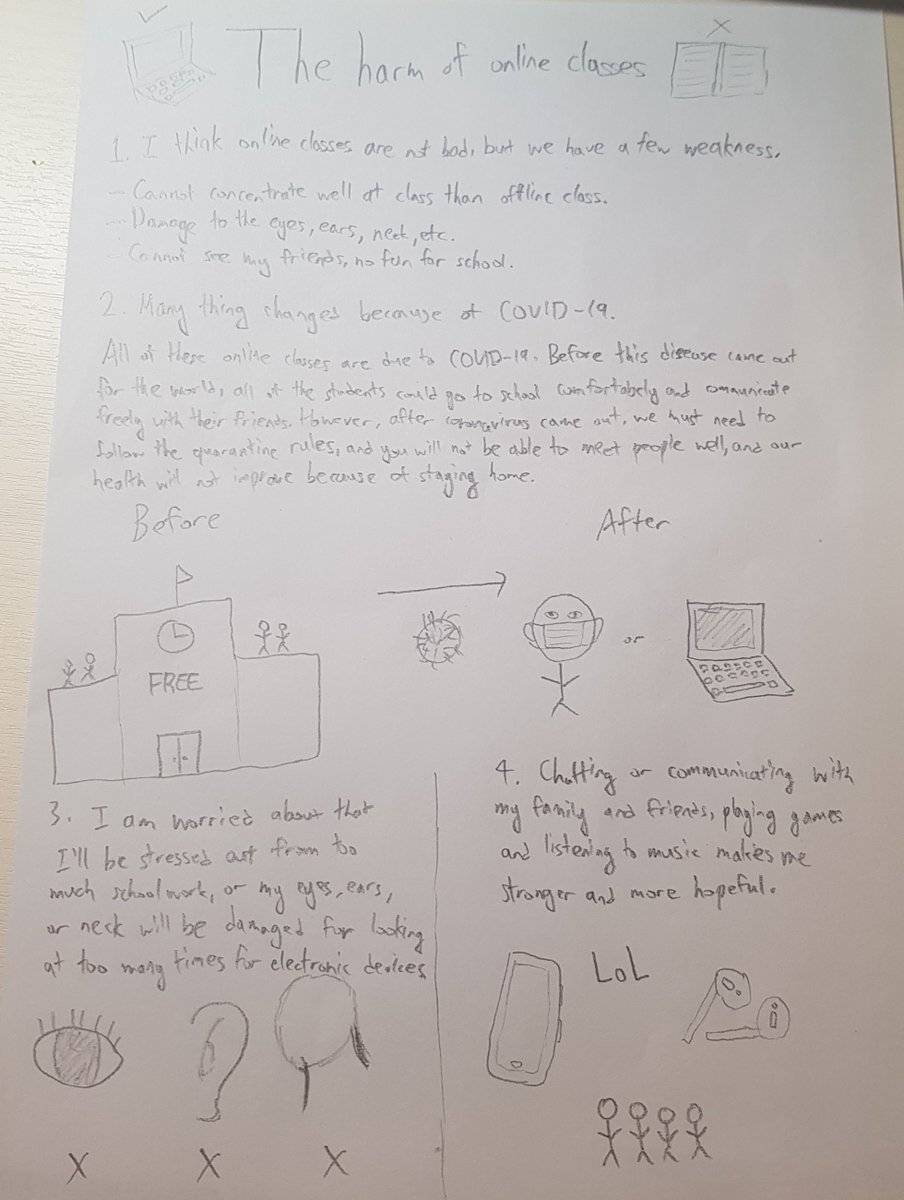 The harm of online classes
1. I think online classes are not bad, but we have a few weakness.
- Cannot concentrate well at class than offline class.
- Damage to the eyes, ears, neck, etc.
- Cannot see my friends, no fun for school.
2. Many thing changes because of COVID-19.
All of these online classes are due to COVID-19. Before this disease came out
for the world, all of the students could go to school comfortabely and communicate
freely with their friends. However, after coronavirus came out, we must need to
follow the quarantine rules, and you will not be able to meet people well, and our
health will not improve because of staying home.
Before
After
FREE
or
3. I am worried about that
I'll be stressed out from too
much schoolwork, or my eyes, ears,
or neck will be damaged for looking
at too many times for electronic devices
X X X
4. Chatting or communicating with
my family and friends, playing games
and listening to music makes me
stronger and more hopeful.
LoL